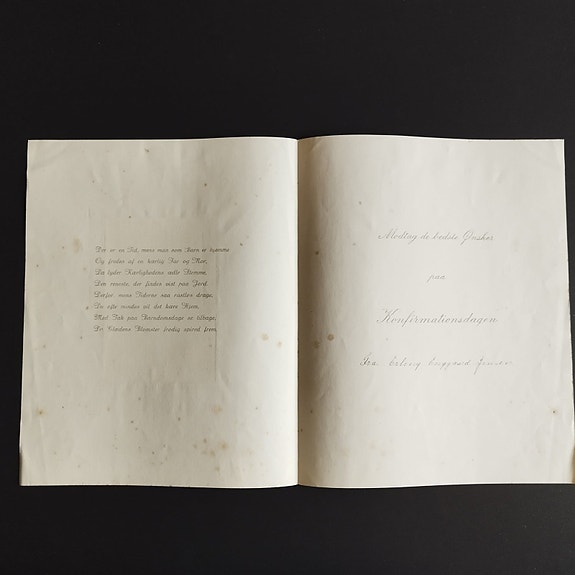 Der er en Tid, mens man som Barn er hjemme
Og fredes af en kærlig Far og Mor,
Da lyder Kærlighedens ædle Stemme,
Den reneste, der findes vist paa Jord.
Derfor, mens Tiderne saa rastløs drage,
Du ofte mindes vil det kære Hjem,
Med Tak paa Barndomsdage se tilbage,
De Mindens Blomster fredig spired frem.
Modtag de bedste Ønsker
paa
Konfirmationsdagen
Fra